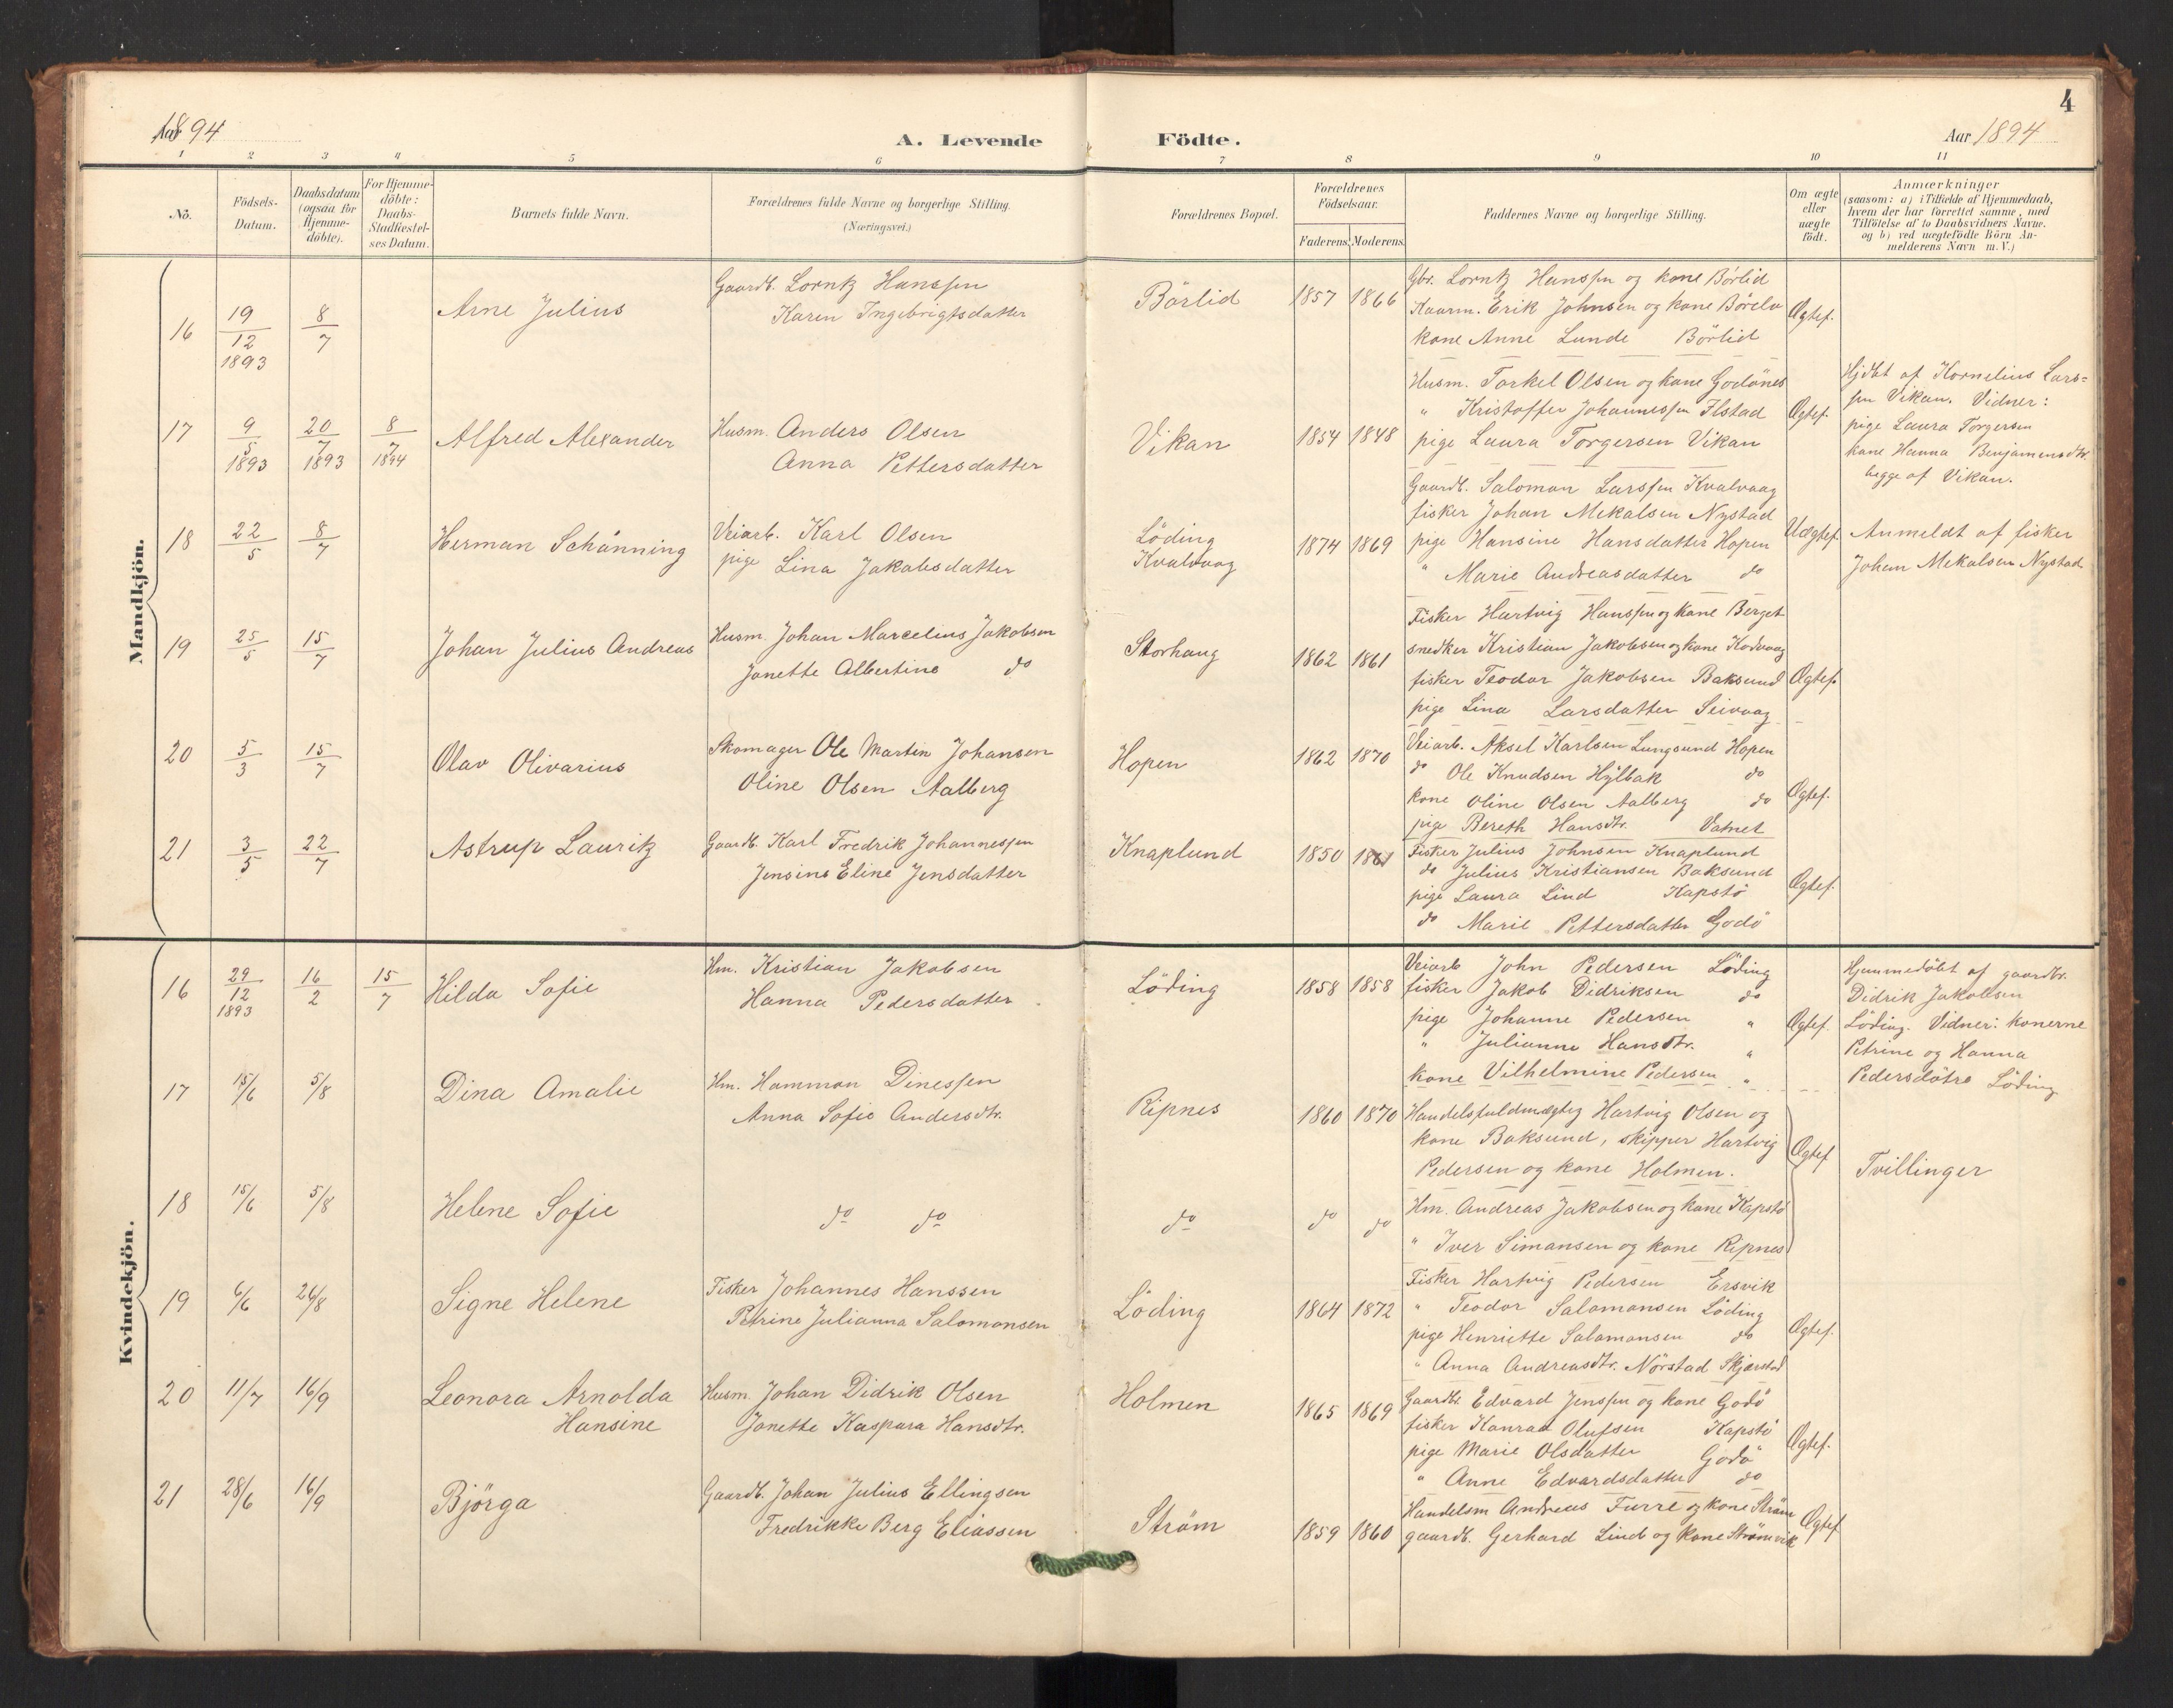 Aar 1894
A. Levende Födte.
4
Aar 1894
1 2 3 4 5 6 7 8 9 10 11
No.
Födsels-Datum.
Daabsdatum (ogsaa for Hjemme-döbte).
For Hjemme-döbte: Daabs-Stadfæstel-ses Datum.
Barnets fulde Navn.
Forældrenes fulde Navne og borgerlige Stilling. (Næringsvei.)
Forældrenes Bopæl.
Forældrenes Födselsaar.
Faderens. Moderens.
Faddernes Navne og borgerlige Stilling.
Om ægte eller uægte födt.
Anmærkninger
(saasom: a) i Tilfælde af Hjemmedaab,
hvem der har forrettet samme, med
Tilföielse af to Daabsvidners Navne.
og b) ved uægtefödte Börn An-
melderens Navn m. V.)
Mandkjön.
16 19/12 1893 8/7 Arne Julius
Gaardb. Lorntz Hanssen
Karen Ingebrigtsdatter
Börlid 1857 1866
Gbr. Lorntz Hanssen og kone Börlid
Kaarm. Erik Johnsen og kone
kone Anne Lunde Börlid
Ægtef.
17 9/5 1893 20/7 1893 8/7 1894 Alfred Alexander
Husm. Anders Olsen
Anna Pettersdatter
Vikan 1854 1848
Husm. Torkel Olsen og kone Godönes
" Kristoffer Johannessen Ilstad
pige Laura Torgersen Vikan
Ægtef.
Hjdbt af Kornelius Lars=
sen Vikan. Vidner:
pige Laura Torgersen
kone Hanna Benjamensdtr.
begge af Vikan.
18 22/5 8/7 Herman Schönning
Veiarb. Karl Olsen
pige Lina Jakobsdatter
Löding
Kvalvaag
1874 1869
Gaardb. Salomon Larssen Kvalvaag
fisker Johan Mekalsen Nystad
pige Hansine Hansdatter Hopen
" Marie Andreasdatter do
Uægtef.
Anmeldt af fisker
Johan Mekalsen Nystad
19 25/5 15/7 Johan Julius Andreas
Husm. Johan Marcelius Jakobsen
Janette Albertine do
Storhaug 1862 1861
Fisker Hartvig Hanssen og kone Berget
snedker Kristian Jakobsen og kone Kodvaag
fisker Teodor Jakobsen Baksund
pige Lina Larsdatter Seivaag
Ægtef.
20 5/3 15/7 Olav Olivarius
Skomager Ole Martin Johansen
Oline Olsen Aalberg
Hopen 1862 1870
Veiarb. Aksel Karlsen Lungsund Hopen
do Ole Knudsen Hylbak do
kone Oline Olsen Aalberg do
pige Bereth Hansdtr. Vatnet
Ægtef.
21 3/5 22/7 Astrup Lauritz
Gaardb. Karl Fredrik Johannessen
Jensine Eline Jensdatter
Knaplund 1850 1861
Fisker Julius Johnsen Knaplund
do Julius Kristiansen Baksund
pige Laura Lind Kapstö
do Marie Pettersdatter Godö
Ægtef.
Kvindekjön.
16 29/12 1893 16/2 15/7 Hilda Sofie
Hm. Kristian Jakobsen
Hanna Pedersdatter
Löding 1858 1858
Veiarb John Pedersen Löding
fisker Jakob Didriksen do
pige Johanne Pedersen "
" Julianne Hansdtr. "
kone Vilhelmine Pedersen "
Ægtef.
Hjemmedöbt af gaardbr.
Didrik Jakobsen
Löding. Vidner: konerne
Petrine og Hanna
Pedersdötre Löding
17 15/6 5/8 Dina Amalie
Hm. Hammon Dinessen
Anna Sofie Andersdtr.
Ripnes 1860 1870
Handelsfuldmægtig Hartvig Olsen og
kone Baksund, skipper Hartvig
Pedersen og kone Holmen.
Ægtef
Tvillinger
18 15/6 5/8 Helene Sofie
do do do do do
Hm. Andreas Jakobsen og kone Kapstö
" Iver Simonsen og kone Ripnes
19 6/6 26/8 Signe Helene
Fisker Johannes Hanssen
Petrine Julianna Salomonsen
Löding 1864 1872
Fisker Hartvig Pedersen Ersvik
" Teodor Salomonsen Löding
pige Henriette Salomonsen do
" Anna Andreasdtr. Nörstad Skjerstad
Ægtef.
20 11/7 16/9 Leonora Arnolda
Hansine
Husm. Johan Didrik Olsen
Janette Kaspara Hansdtr.
Holmen 1865 1869
Gaardb. Edvard Jenssen og kone Godö
fisker Konrad Olufsen Kapstö
pige Marie Olsdatter Godö
" Anne Edvardsdatter do
Ægtef.
21 28/6 16/9 Björga
Gaardb. Johan Julius Ellingsen
Fredrikke Berg Eliassen
Ström 1859 1860
Handelsm Andreas Furre og kone Ström
gaardb. Gerhard Lind og kone Strömvik
Ægtef